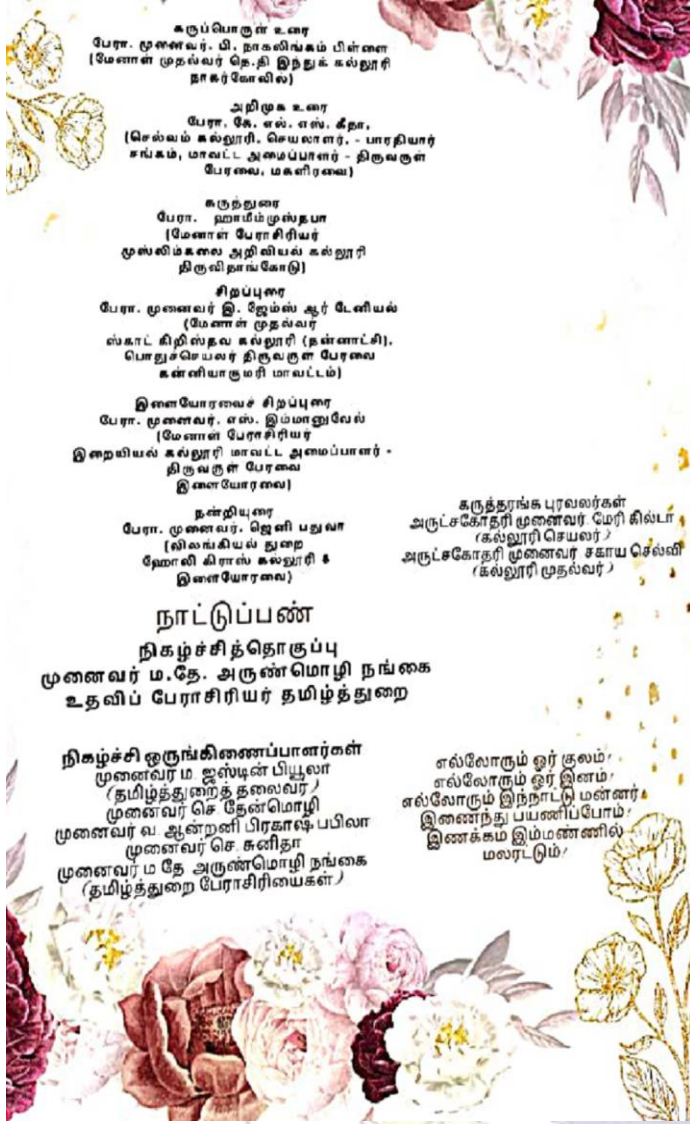 கருப்பொருள் உரை
பேரா. முனைவர். பி. நாகலிங்கம் பிள்ளை
(மேனாள் முதல்வர் தெ.தி இந்துக் கல்லூரி
நாகர்கோவில்)
அறிமுக உரை
பேரா. கே. எல். எஸ். கீதா,
(செல்வம் கல்லூரி, செயலாளர், - பாரதியார்
சங்கம், மாவட்ட அமைப்பாளர் - திருவருள்
பேரவை, மகளிரவை)
கருத்துரை
பேரா. ஹாமீம்முஸ்தபா
(மேனாள் பேராசிரியர்
முஸ்லிம்கலை அறிவியல் கல்லூரி
திருவிதாங்கோடு)
சிறப்புரை
பேரா. முனைவர் இ. ஜேம்ஸ் ஆர் டேனியல்
(மேனாள் முதல்வர்
ஸ்காட் கிறிஸ்தவ கல்லூரி (தன்னாட்சி),
பொதுச்செயலர் திருவருள் பேரவை
கன்னியாகுமரி மாவட்டம்)
இளையோரவைச் சிறப்புரை
பேரா. முனைவர். எஸ். இம்மானுவேல்
(மேனாள் பேராசிரியர்
இறையியல் கல்லூரி மாவட்ட அமைப்பாளர் -
திருவருள் பேரவை
இளையோரவை)
நன்றியுரை
பேரா. முனைவர். ஜெனி பதுவா
(விலங்கியல் துறை
ஹோலி கிராஸ் கல்லூரி &
இளையோரவை)
கருத்தரங்க புரவலர்கள்
அருட்சகோதரி முனைவர். மேரி கில்டா
(கல்லூரி செயலர்)
அருட்சகோதரி முனைவர் சகாய செல்வி
(கல்லூரி முதல்வர்)
நாட்டுப்பண்
நிகழ்ச்சித்தொகுப்பு
முனைவர் ம.தே. அருண்மொழி நங்கை
உதவிப் பேராசிரியர் தமிழ்த்துறை
நிகழ்ச்சி ஒருங்கிணைப்பாளர்கள்
முனைவர் ம. ஜஸ்டின் பியூலா
(தமிழ்த்துறைத் தலைவர்)
முனைவர் செ. தேன்மொழி
முனைவர் வ. ஆன்றனி பிரகாஷ் பபிலா
முனைவர் செ. சுனிதா
முனைவர் ம தே அருண்மொழி நங்கை
(தமிழ்த்துறை பேராசிரியைகள்)
எல்லோரும் ஓர் குலம்!
எல்லோரும் ஓர் இனம்!
எல்லோரும் இந்நாட்டு மன்னர்!
இணைந்து பயணிப்போம்!
இணக்கம் இம்மண்ணில்
மலரட்டும்!